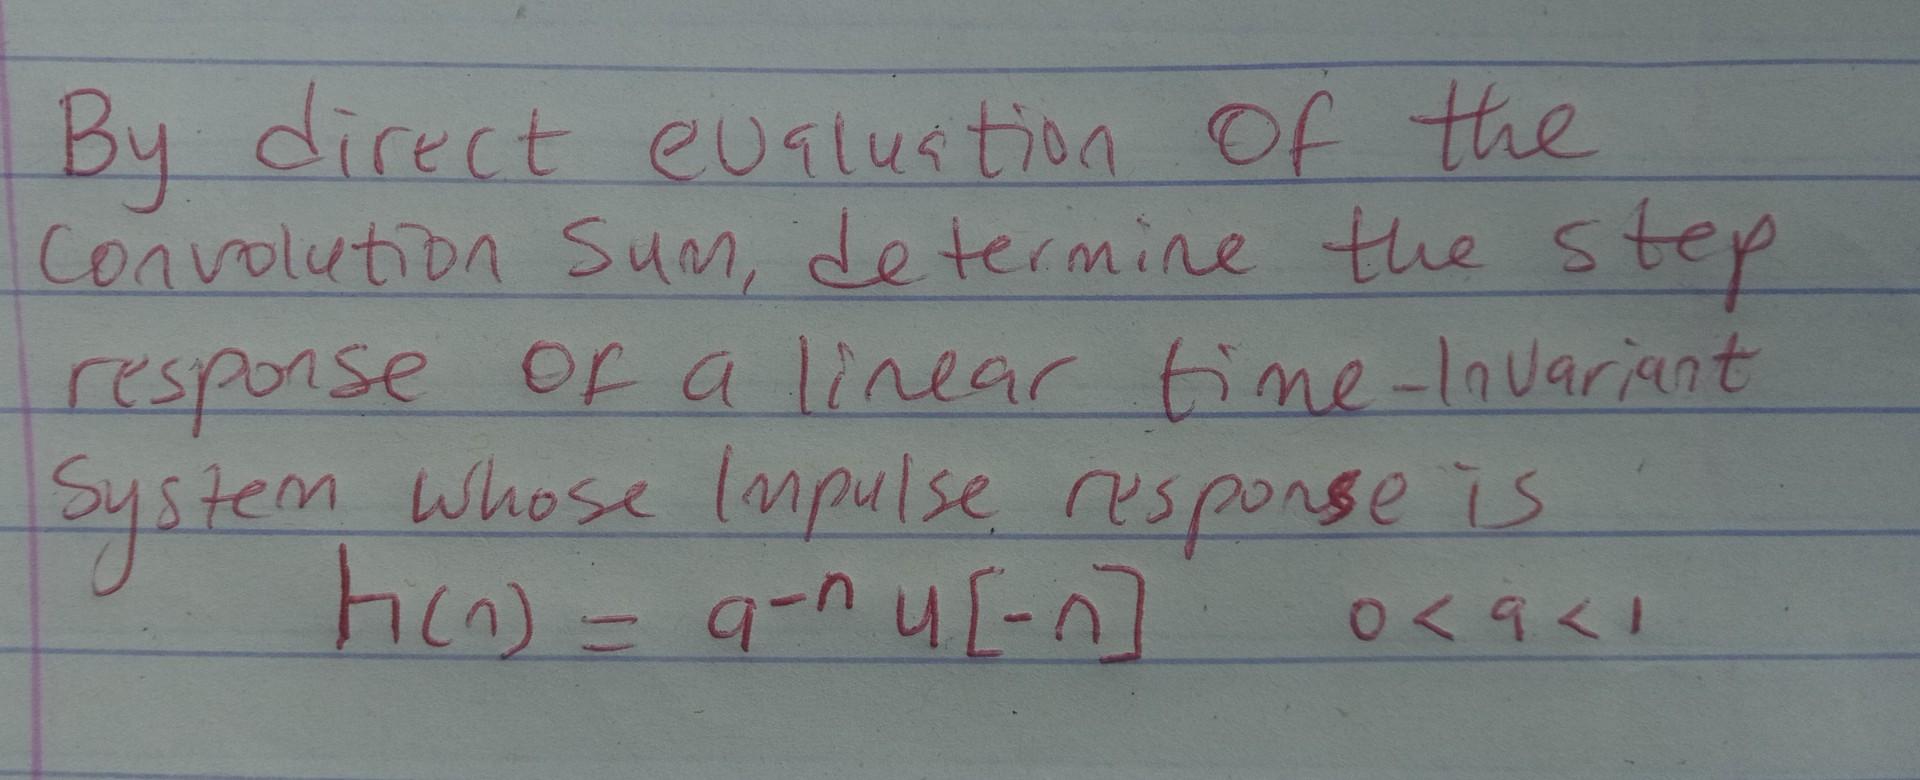 By direct evaluation Of the
Convolution Sum, determine the step
response Of a linear time-Invariant
System whose Impulse response is
h(n) = a⁻ⁿ u[-n] 0 < a < 1